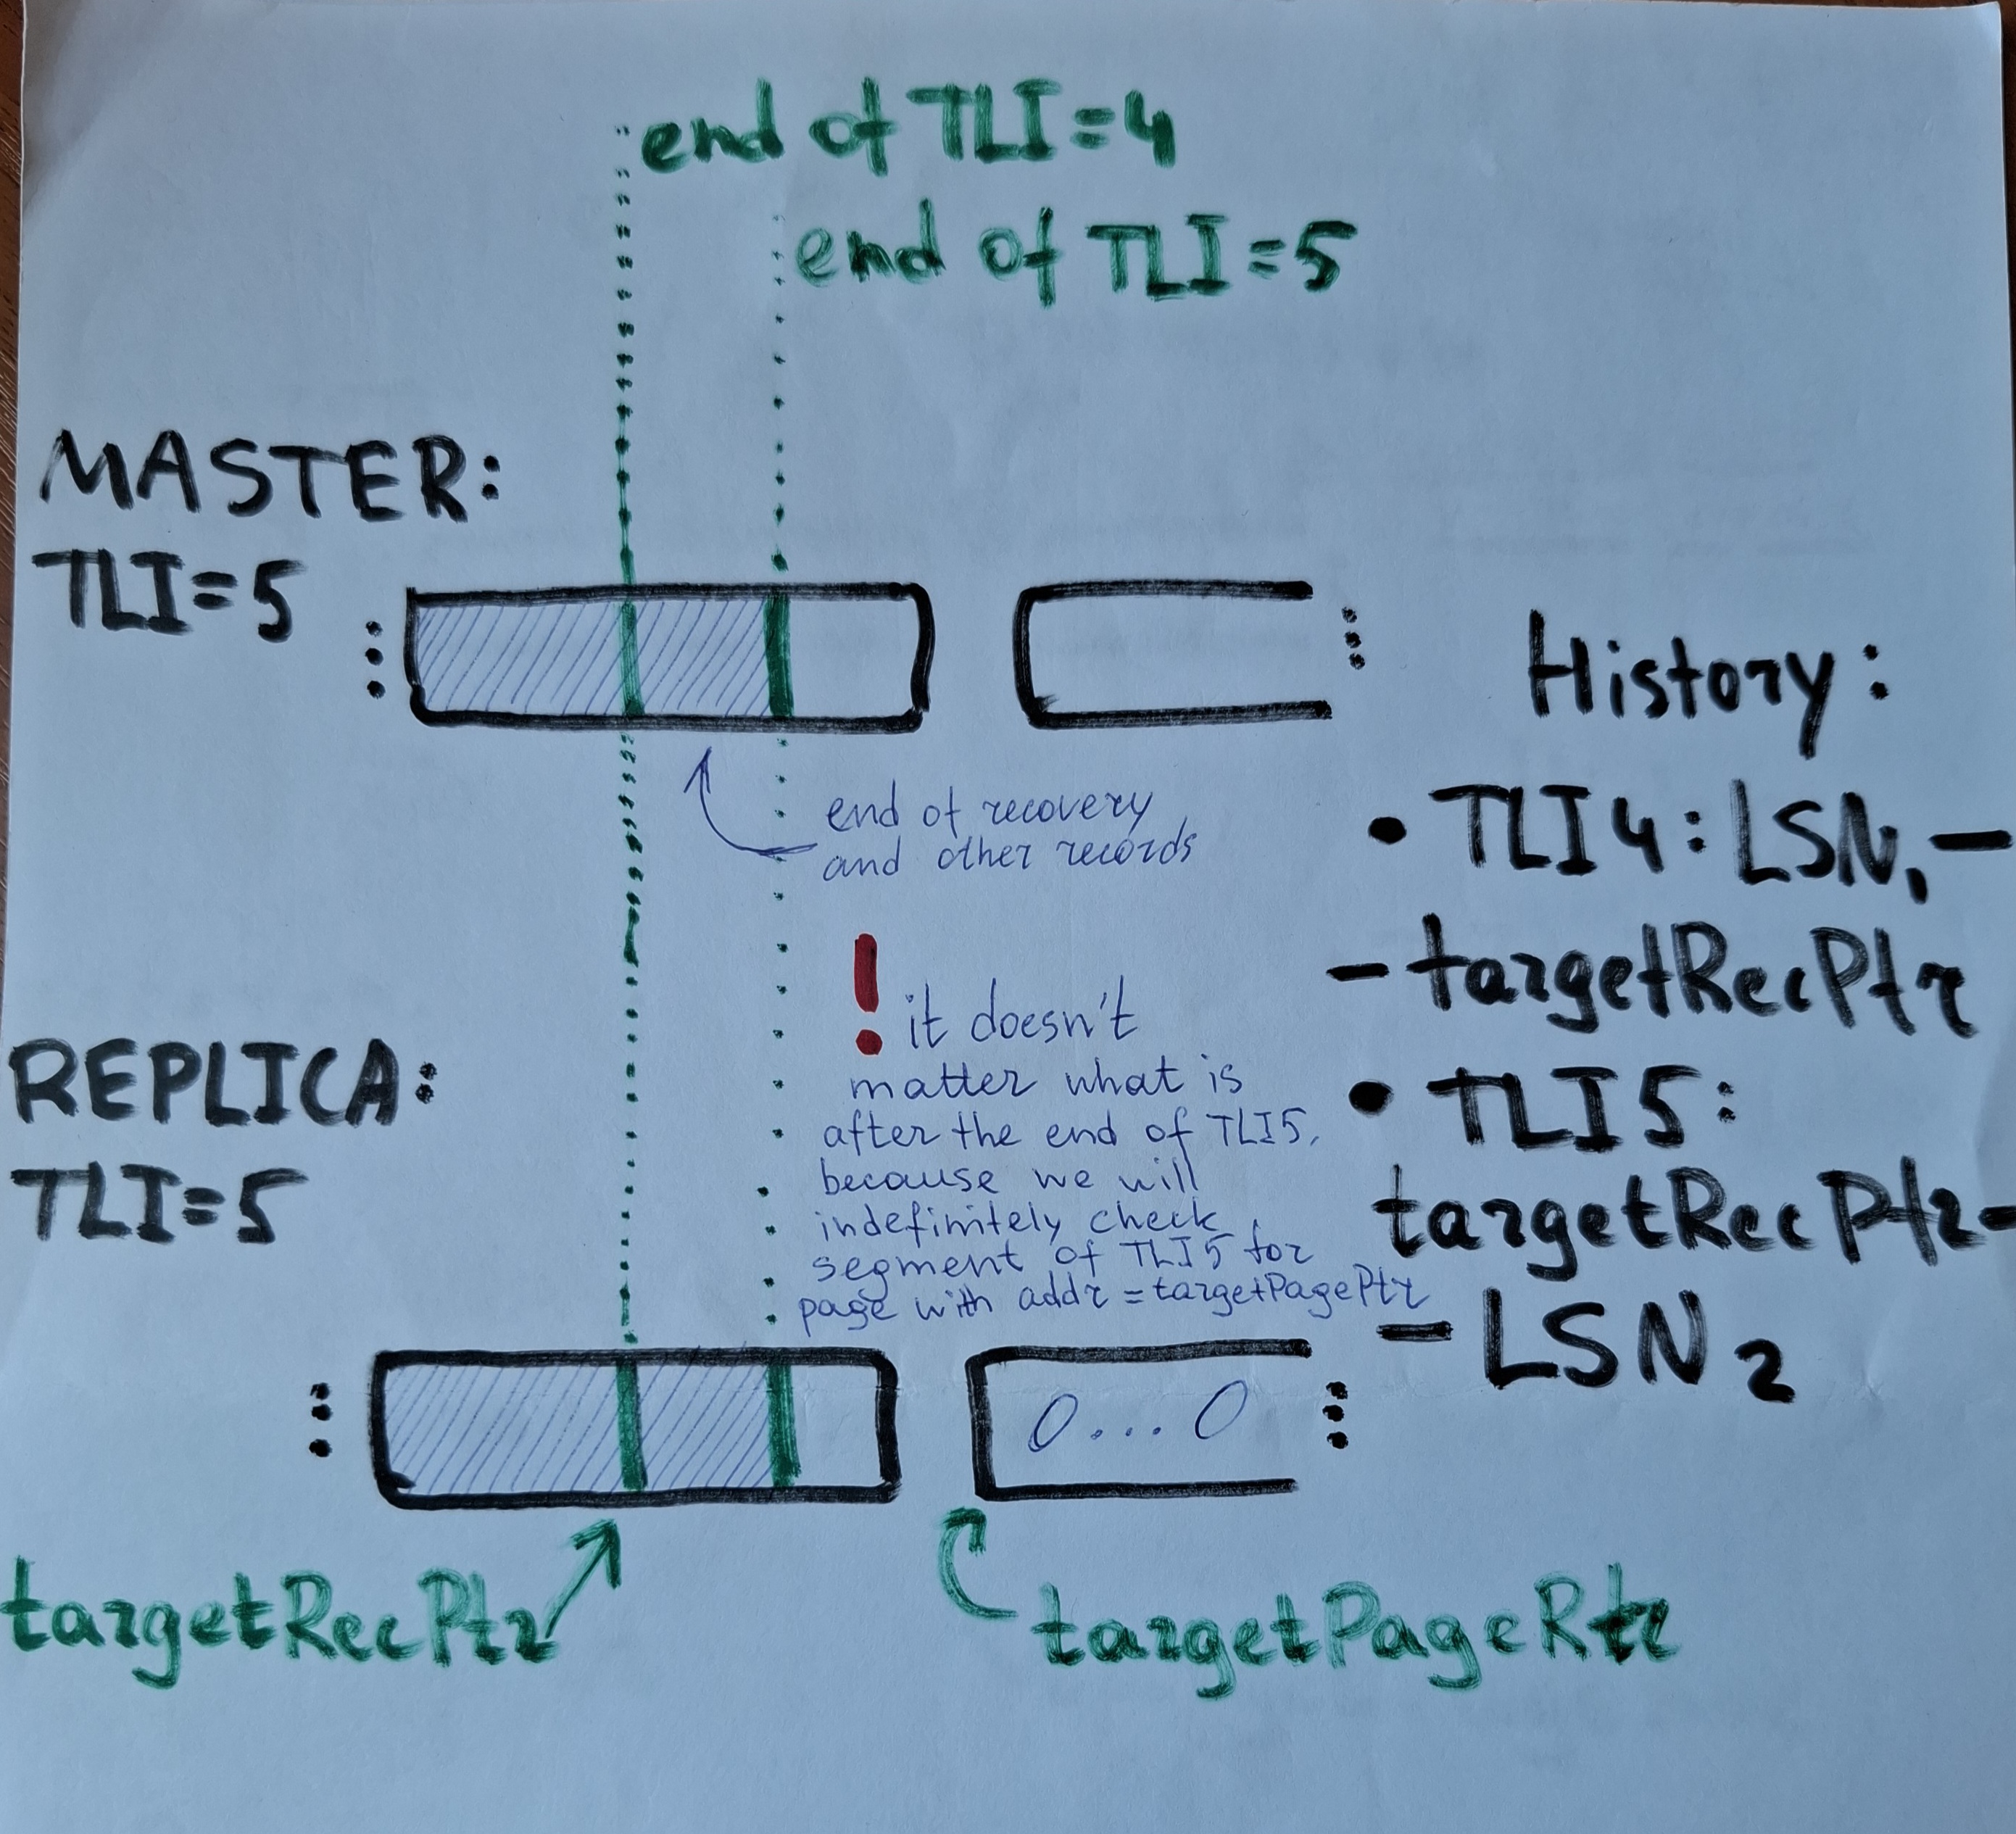 end of TLI=4
end of TLI=5
MASTER:
TLI=5
end of recovery
and other records
! it doesn't
matter what is
after the end of TLI5,
because we will
indefinitely check
segment of TLI5 for
page with addr = targetPagePtr
REPLICA:
TLI=5
0...0
targetRecPtr
targetPageRtr
History:
• TLI4: LSN₁ –
– targetRecPtr
• TLI5:
targetRecPtr –
– LSN₂